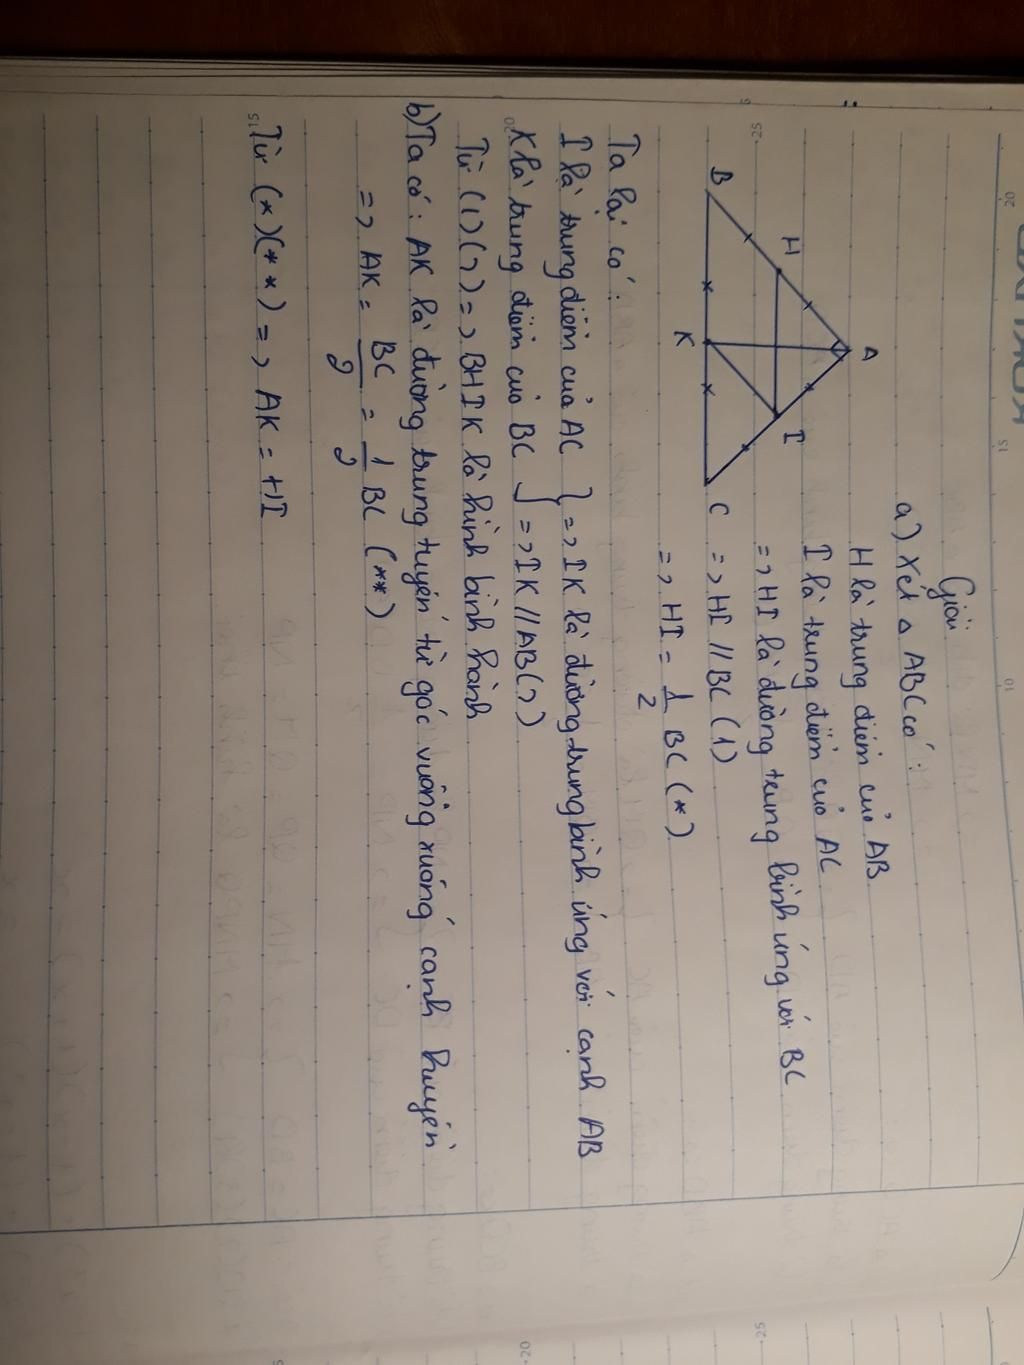 Giải
a) Xét △ ABC có :
H là trung điểm của AB
I là trung điểm của AC
=> HI là đường trung bình ứng với BC
=> HI // BC (1)
=> HI = 1/2 BC (*)
A
H
I
B
K
C
Ta lại có :
I là trung điểm của AC } => IK là đường trung bình ứng với cạnh AB
K là trung điểm của BC } => IK // AB (2)
Từ (1) (2) => BHIK là hình bình hành
b) Ta có : AK là đường trung tuyến từ góc vuông xuống cạnh huyền
=> AK = BC/2 = 1/2 BC (**)
Từ (*) (**) => AK = HI
20
15
10
25
20
15
25
20